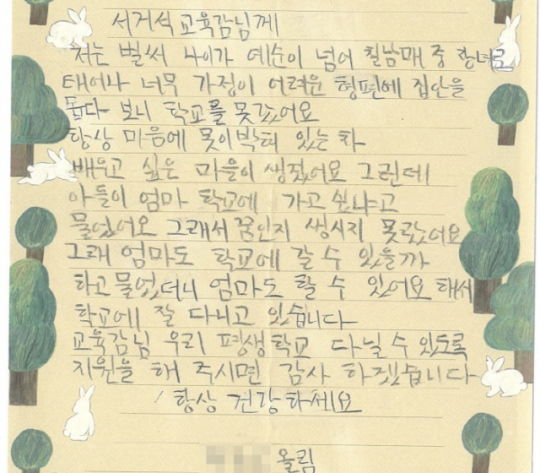 서거석 교육감님께
저는 벌써 나이가 예순이 넘어 칠남매 중 장녀로
태어나 너무 가정이 어려운 형편에 집안을
돕다 보니 학교를 못갔어요
항상 마음에 못이박혀 있는차
배우고 싶은 마을이 생겼어요 그런데
아들이 엄마 학교에 가고 싶냐고
물었어요 그래서 꿈인지 생시지 못랐어요
그래 엄마도 학교에 갈 수 있을까
하고 물었더니 엄마도 할 수 있어요 해서
학교에 잘 다니고 있습니다
교육감님 우리 평생학교 다닐 수 있도록
지원을 해 주시면 감사 하겠습니다
항상 건강하세요
올림